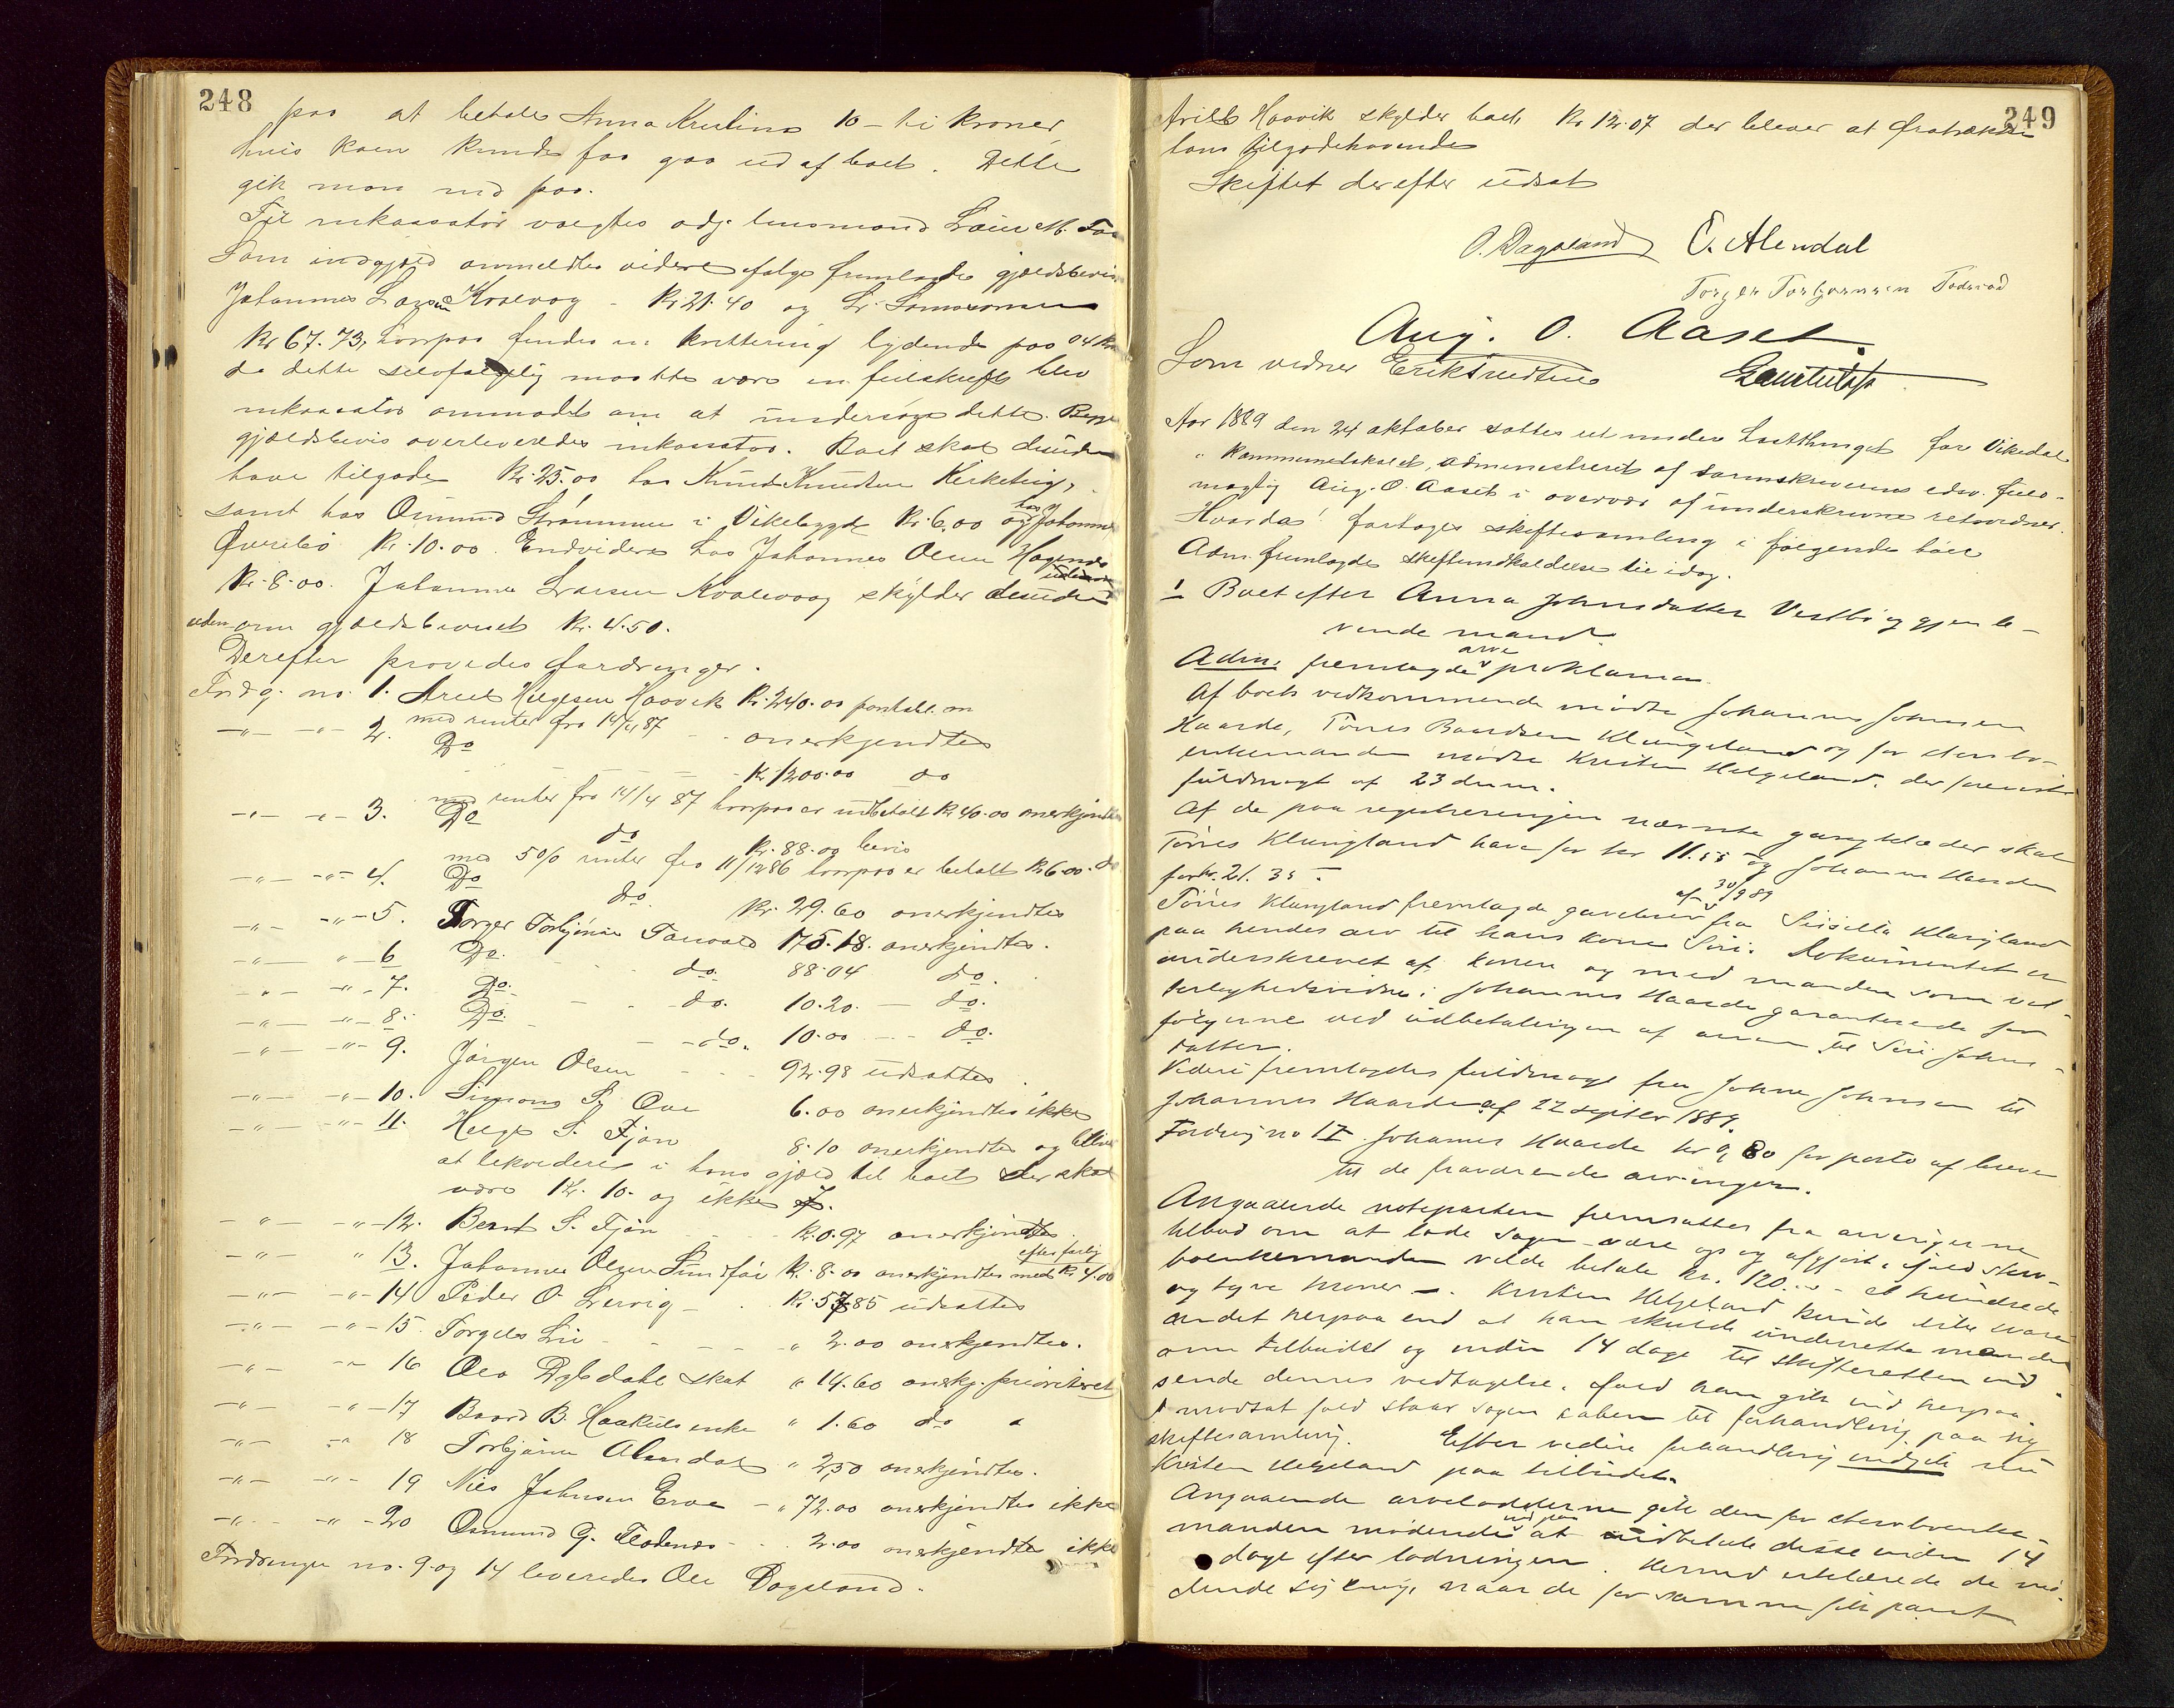 248
paa at betale Anna Karlina 10 - ti kroner
hvis koen kunde faa gaa ud af boet. Dette
gik man ind paa.
Til inkassator valgtes adj. lensmand Lars M.
Som indgjæld anmeldtes videre ifølge fremlagte gjældsbevis
Johannes Larsen Kvalevaag - Kr 21.40 og
Kr 67.73, hvorpaa findes en kvittering lydende paa
da dette selvfølgelig maatte være en feilskrift blev
inkassator anmodet om at undersøge dette. Begge
gjældsbevis overleveredes inkassator. Boet skal desuden
have tilgode Kr. 25.00 hos Knud Knudsen
samt hos Osmund Strømmen i Vikebygd Kr. 6.00 og hos Johannes
Øverebø Kr. 10.00. Endvidere hos Johannes Olsen
Kr. 8.00. Johannes Larsen Kvalevaag skylder desuden
uden om gjældsbeviset Kr. 4.50.
Derefter prøvedes fordringer.
Fordg. no. 1. Arild Helgesen Haavik Kr. 240.00
med renter fra 14/4 87 - - anerkjendtes
-"- -"- 2. Do
Kr 1200.00 do
med renter fra 14/4 87 hvorpaa er udbetalt Kr 40.00 anerkjendtes
-"- -"- 3. Do do Kr. 88.00 bevis
med 5% renter fra 11/12 86 hvorpaa er betalt Kr 6.00. do
-"- -"- 4. Do do. Kr. 29.60 anerkjendtes
-"- -"- 5. Torger Torbjørnsen 175.18. anerkjendtes.
-"- " - 6 Do. - - do. 88.04 do.
-"- -"- 7. Do. - - do. 10.20. - do.
-"- -"- 8. Do. - - do. 10.00 - - do.
-"- -"- 9. Jørgen Olsen - - - 92.98 udsattes
-"- -"- 10. Simon S. 6.00 anerkjendtes ikke
-"- -"- 11. Helge S. Fjøn 8.10 anerkjendtes og bliver
at likvidere i hans gjæld til boet der skal
være 12.10. og ikke 7.
-"- -"- 12. Bernt S. Fjøn - - Kr. 0.97 anerkjendtes.
-"- " 13. Johannes Olsen Sundfør Kr. 8.00 anerkjendtes med Kr. 4.00
-"- -"- 14 Peder O. Lervig - . Kr. 57.85 udsattes
-"- -"- 15. Torgils Lie - - - " 2.00 anerkjendtes.
-"- -"- 16 Ole Dybdahl skat " 14.60 anerkj. prioriteret
-"- -"- 17 Baard B. enke " 1.60 do "
-"- -"- 18 Torbjørn Alendal " 2.50 anerkjendtes.
-"- -"- 19 Nils Johnsen - " 72.00 anerkjendtes ikke
-"- -"- 20 Osmund G. - - 2.00 anerkjendtes ikke
Fordringer no. 9 og 14 leveredes Ole Dagsland.
249
Arild Haavik skylder boet Kr 12.07 der bliver at fratrække
hans tilgodehavende
Skiftet derefter udsat
O. Dagsland O. Alendal
Torger Torbjørnsen
Aug. O. Aaset.
Som vidner Erik
Aar 1889 den 24 oktober sattes ret under høstthinget for Vikedals
kommunelokalet, administreret af sorenskriverens edsv. fuld-
mægtig Aug. O. Aaset i overvær af underskrevne retsvidner.
Hvorda: foretoges skiftesamling i følgende boer
Adm. fremlagde skifteindkaldelse til idag.
1 Boet efter Anna Johnsdatter Vestbø og gjenle-
vende mand.
Adm. fremlagde arve proklama.
Af boets vedkommende mødte Johannes Johnsen
Haarde, Tørres Baardsen Klungland og for stervbo-
enkemanden mødte Kristen Helgeland, der foreviste
fuldmagt af 23 dennes.
Af de paa registreringen nævnte gangklæder skal
Tørres Klungland have for kr 11.55 og Johannes Haarde
for kr. 21.35.
Tørres Klungland fremlagde gavebrev af 30/9 89 fra Sissella Klungland
paa hendes arv til hans kone Siri. Dokumentet er
underskrevet af konen og med manden som vit-
terlighedsvidne; Johannes Haarde garanterede for
følgerne ved udbetalingen af arven til Siri Johns-
datter.
Videre fremlagdes fuldmagt fra Johne Johnsen til
Johannes Haarde af 22 septbr 1889.
Fordring no 1 Johannes Haarde kr 0,80 for porto af breve
til de fraværende arvinger.
Angaaende noteparten fremsattes fra arvingerne
tilbud om at lade sagen være op og afgjort, ifald sterv-
boenkemanden vilde betale kr. 120.00 - et hundrede
og tyve kroner -. Kristen Helgeland kunde ikke svare
andet herpaa end at han skulde underrette manden
om tilbudet og inden 14 dage til skifteretten ind-
sende dennes vedtagelse, ifald han gik ind herpaa.
I modsat fald staar sagen aaben til forhandling paa ny
skiftesamling. Efter videre forhandling indgik nu
Kristen Helgeland paa tilbudet.
Angaaende arvelodderne gik den for stervboenke-
manden mødende ind paa at udbetale disse inden 14
dage efter lodningen. Hermed erklærede de mø-
dende sig enige, naar de for samme fik pant